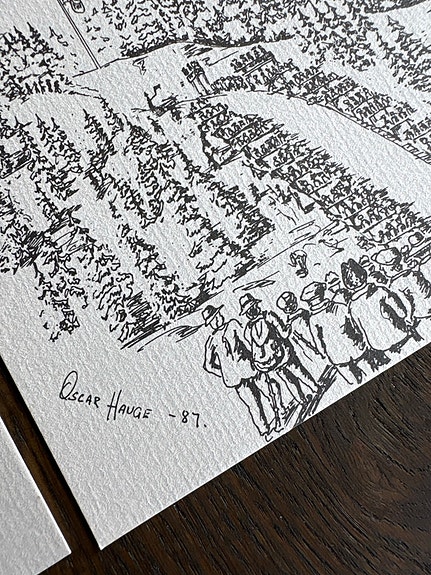 Oscar Hauge -87.